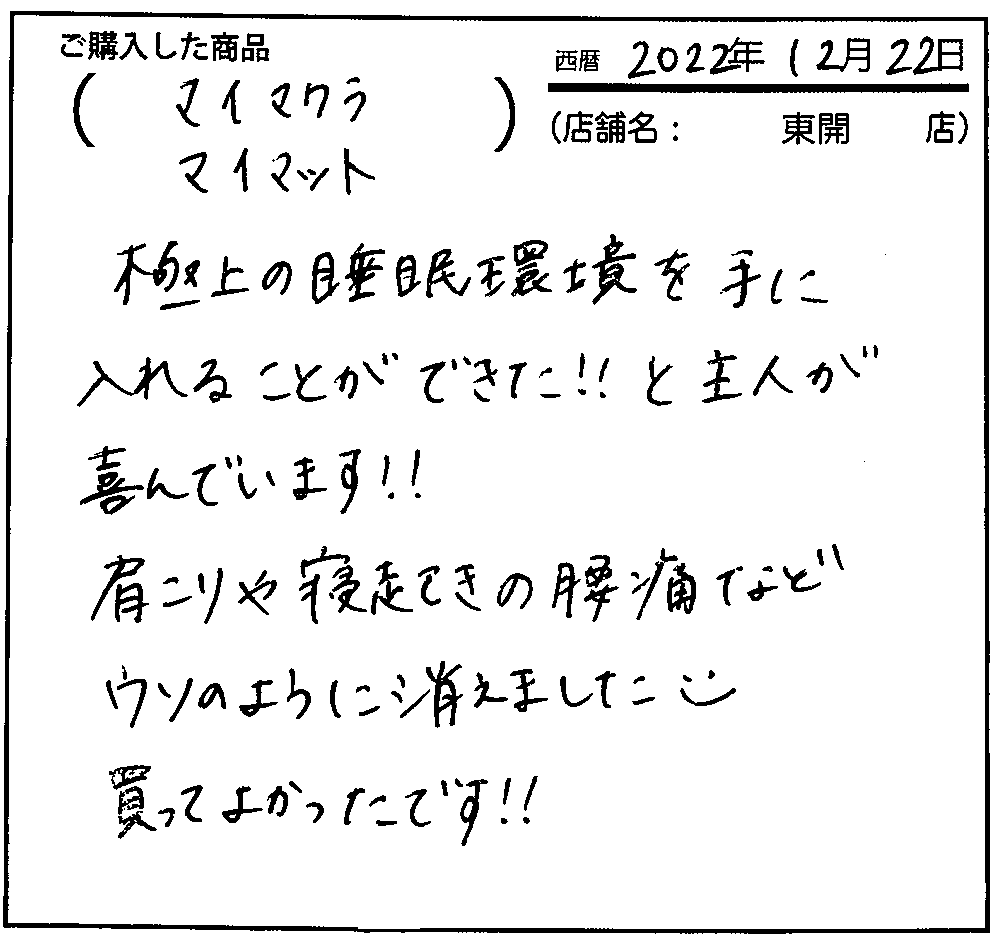 ご購入した商品
西暦 2022年 12月 22日
( マイマクラ )
マイマット
(店舗名: 東開 店)
極上の睡眠環境を手に
入れることができた!!と主人が
喜んでいます!!
肩こりや寝起きの腰痛など
ウソのように消えました
買ってよかったです!!